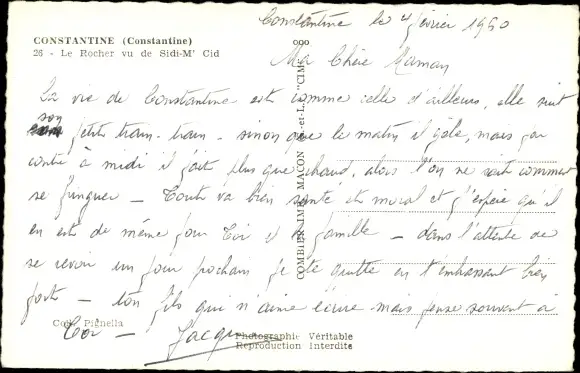 Constantine le 4 février 1960
CONSTANTINE (Constantine)
26 - Le Rocher vu de Sidi-M' Cid
Ma Chère Maman
La vie de Constantine est comme celle d'ailleurs, elle suit
son petits train-train - sinon que le matin il gèle, mais par
contre à midi il fait plus que chaud, alors l'on ne sait comment
se fringuer - Toute va bien santé et moral et j'espère qu'il
en est de même pour Toi et la famille - dans l'attente de
se revoir un jour prochain je te quitte en t'embrassant bien
forts - ton fils qui n'aime écrire mais pense souvent à
Toi - Jacques
Coll. Pignella
COMBIER IMP. MACON "CIM"
Photographie Véritable
Reproduction Interdite